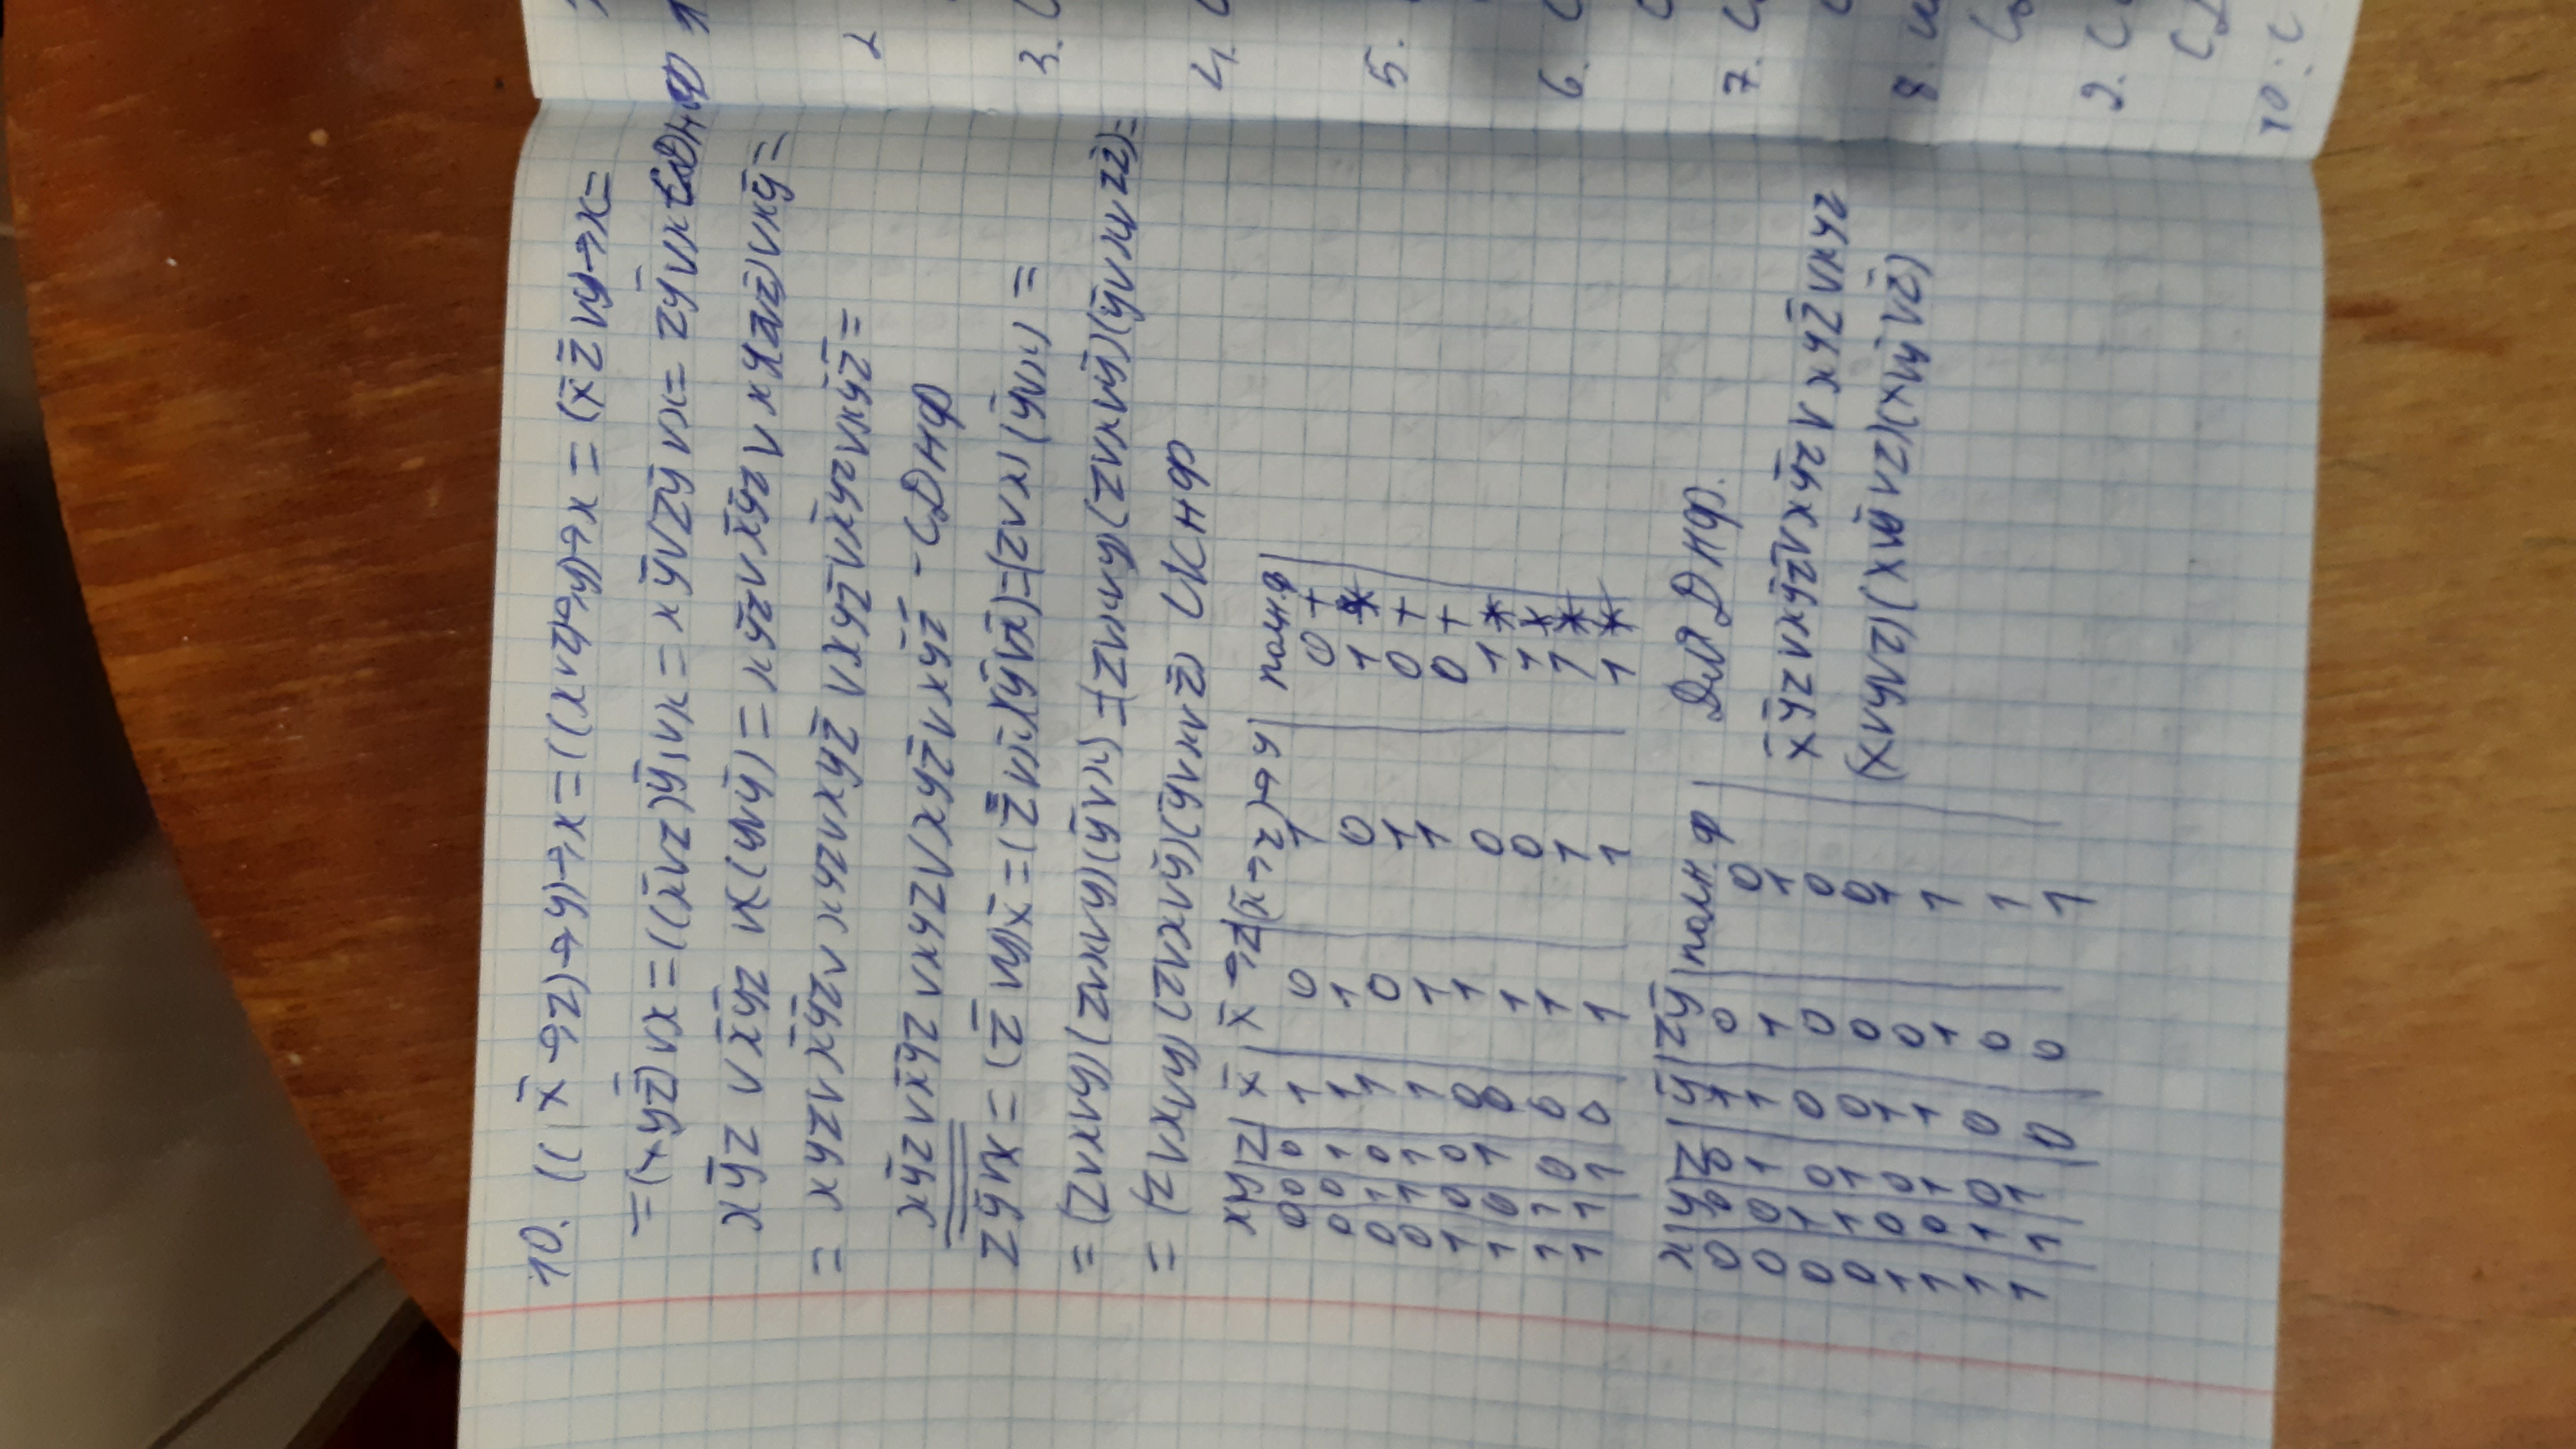 10. (( x̄ → z) → y) → x = ((x∨z) → y) → x = (x̄ z̄ ∨ y) → x =
= (x y z̄) ∨ x = ((x̄∨z) ȳ) ∨ x = x ȳ ∨ z ȳ ∨ x = z ȳ ∨ x СДНФ
x ȳ z ∨ x̄ ȳ z ∨ x (y∨ȳ) = x ȳ z ∨ x̄ ȳ z ∨ x y(z∨z̄) ∨ x ȳ =
= x y z ∨ x̄ ȳ z ∨ x y z ∨ x y z̄ ∨ x y z̄ ∨ x̄ y z ∨ x ȳ z̄ =
x ȳ z ∨ x̄ ȳ z ∨ x y z ∨ x y z̄ ∨ x ȳ z̄ - СДНФ
z ȳ ∨ x = ( z̄ ∨ y) x̄ = ( z̄ ∨ x̄)(ȳ ∨ x̄) = (z∨x) (ȳ∨x) =
= (z∨x∨y) (z∨x∨y)(ȳ∨x) = (z∨x∨y) (z∨x∨ȳ)(ȳ∨x∨z z̄) =
= (z∨x∨y) (z∨x∨ȳ)(ȳ∨x∨z̄) СКНФ
x | y | z | x̄ | x̄ → z | (x̄ → z) → y | полн.ф
0 0 0 1 0 1 0 +
0 0 1 1 1 0 1 *
0 1 0 1 0 1 0 +
0 1 1 1 1 1 0 +
1 0 0 0 1 0 1 *
1 0 1 0 1 0 1 *
1 1 0 0 1 1 1 *
1 1 1 0 1 1 1 *
x | y | z | ȳ | z ȳ | полн. ф
0 0 0 1 0 0
0 0 1 1 1 1
0 1 0 0 0 0
0 1 1 0 0 0
1 0 0 1 0 1
1 0 1 1 1 1
1 1 0 0 0 1
1 1 1 0 0 1
Для ДНФ.
x̄ ȳ z ∨ x ȳ z̄ ∨ x ȳ z ∨ x y z̄ ∨ x y z
(x∨y∨z) (x∨ȳ∨z)(x∨ȳ∨z̄)
2
3.
4.
5.
6.
7.
8.
9.
10.